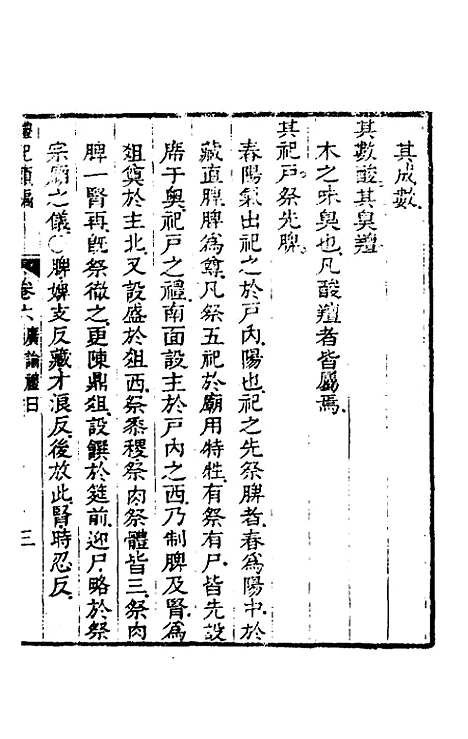 其成數
其數酸其臭羶
木之味臭也凡酸羶者皆屬焉
其祀戶祭先脾
春陽氣出祀之於戶內陽也祀之先祭脾者春爲陽中於
藏直脾脾爲尊凡祭五祀於廟用特牲有祭有尸皆先設
席于奧祀戶之禮南面設主於戶內之西乃制脾及腎爲
俎奠於主北又設盛於俎西祭黍稷祭肉祭醴皆三祭肉
脾一腎再旣祭徹之更陳鼎俎設饌於筵前迎尸略於祭
宗廟之儀○脾婢支反藏才浪反後放此腎時忍反
禮記 卷六 廣論禮曰 三